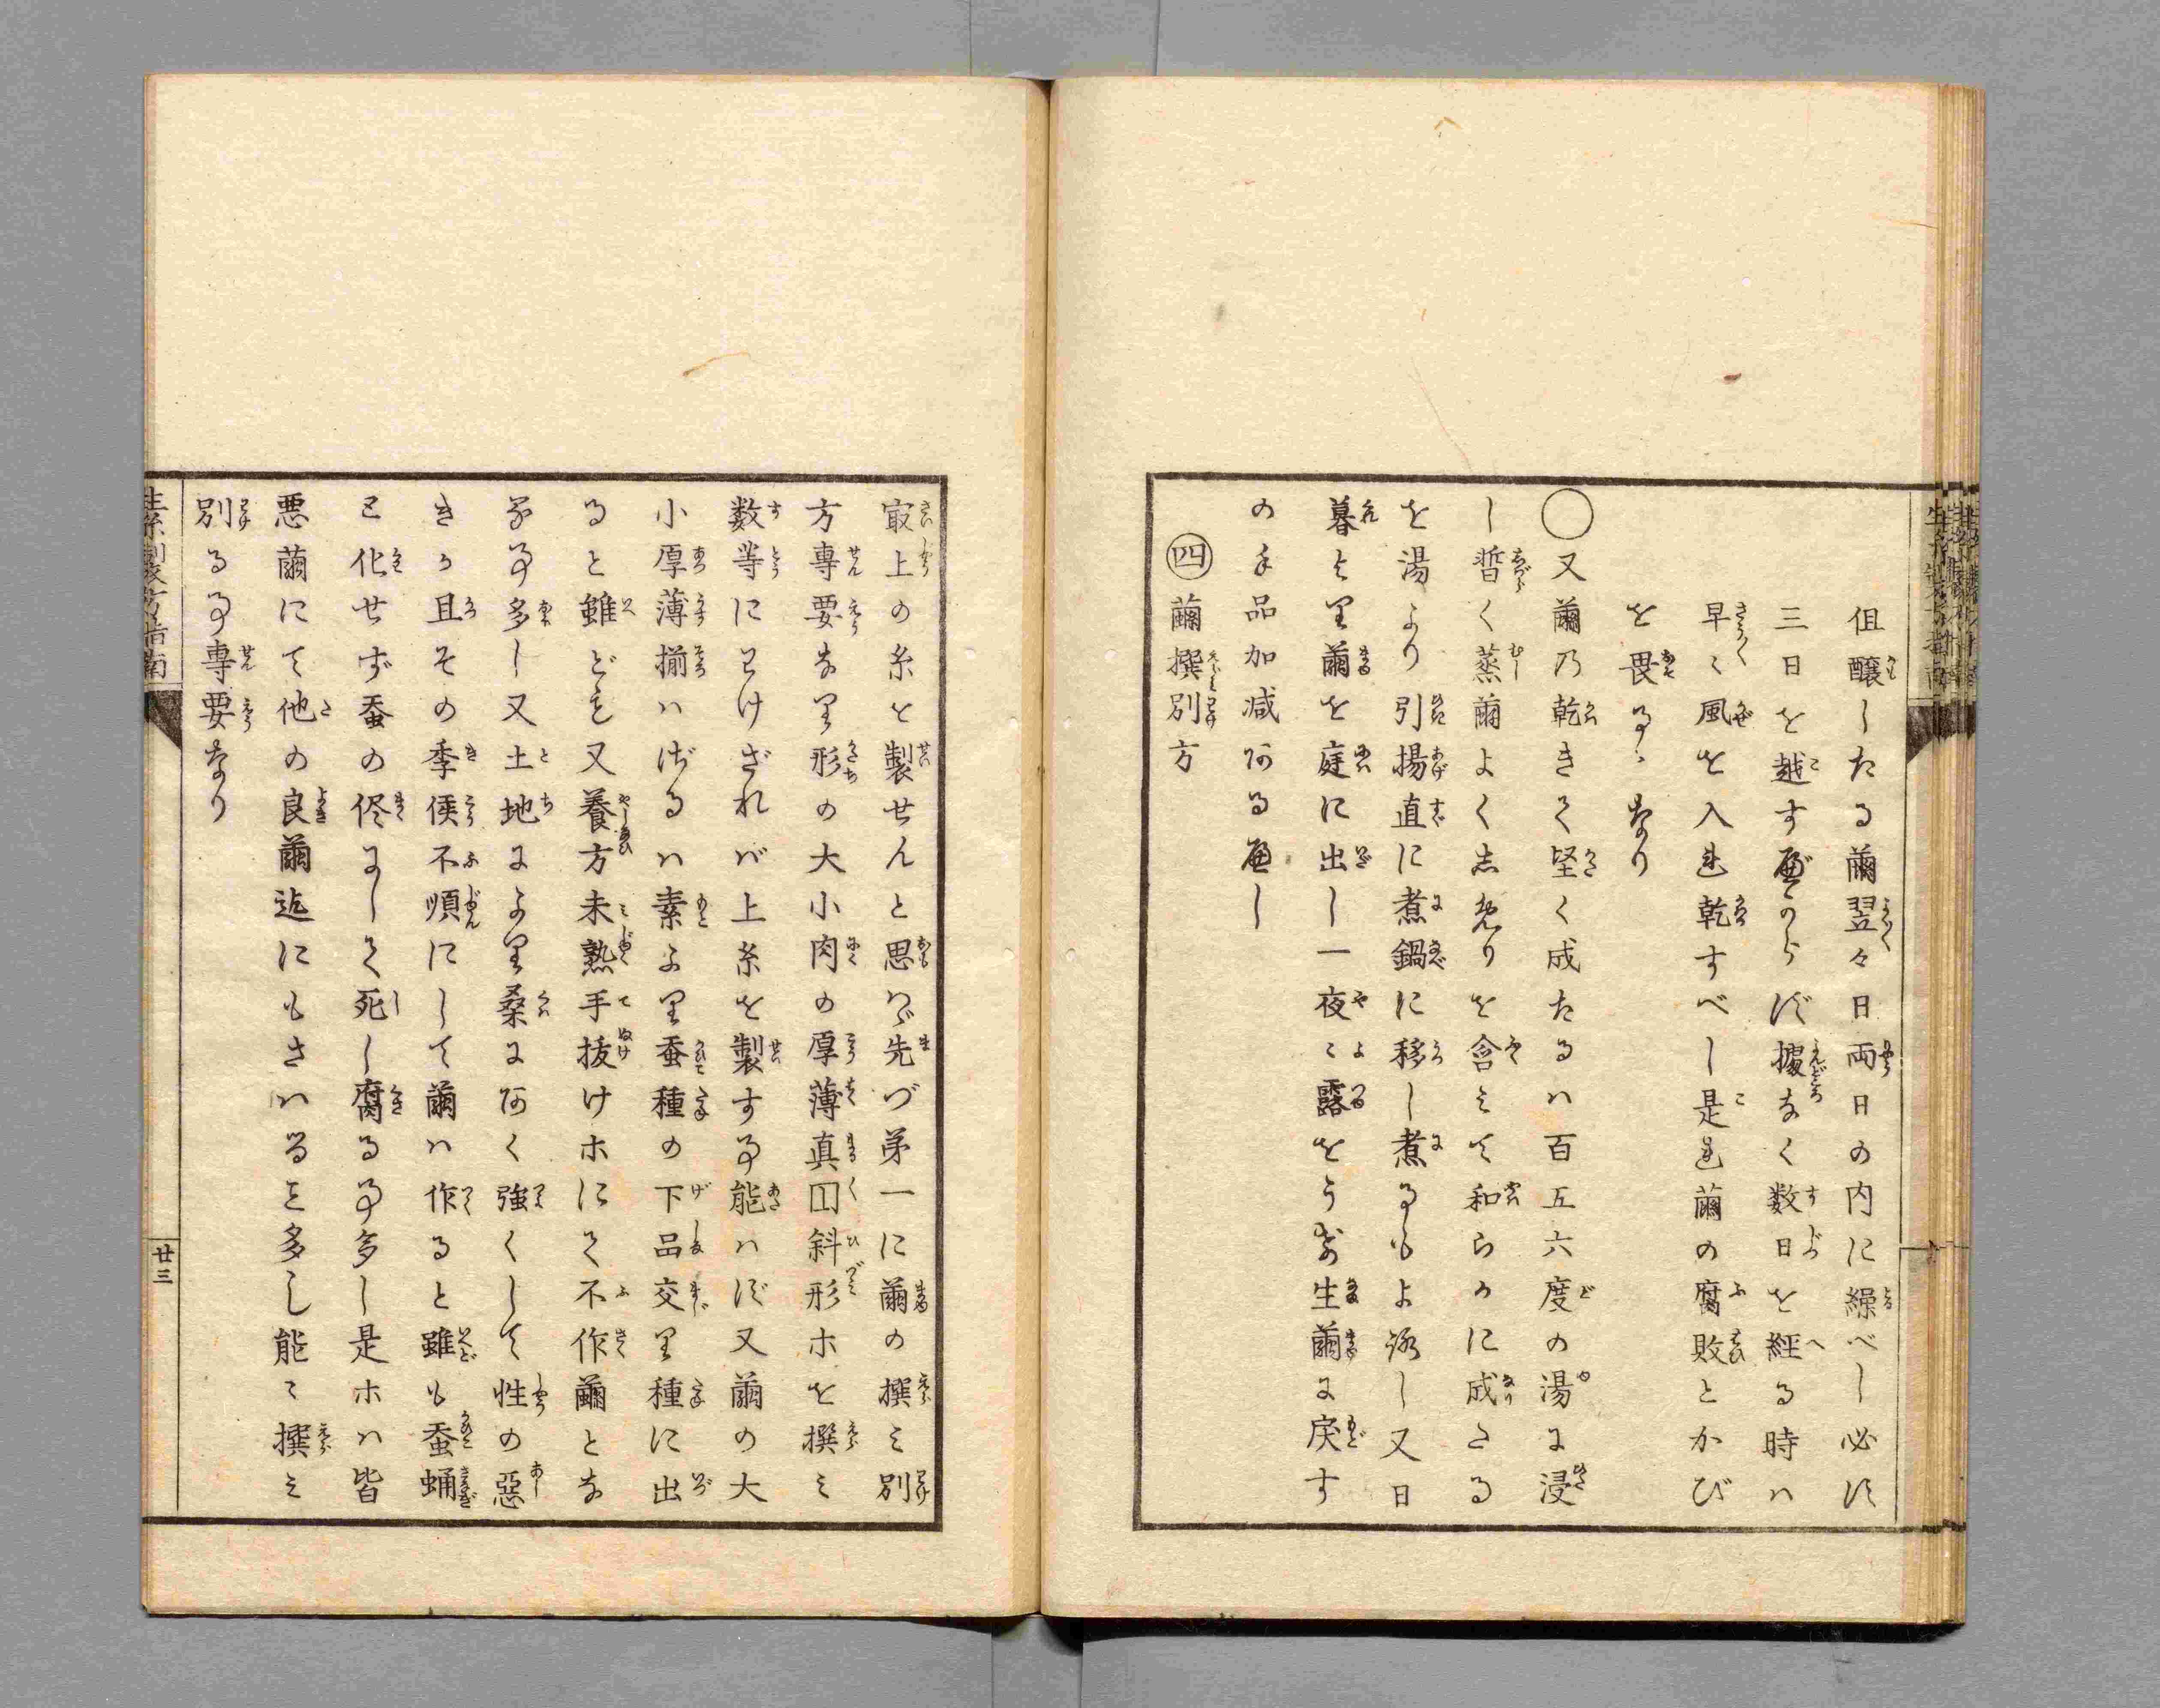 但醸したる繭翌々日両日の内に繰べし必ず
三日を越すべからず據なく数日を経る時ハ
早く風を入れ乾すべし是れ繭の腐敗とかび
を畏るゝなり
○又繭乃乾きて堅く成たるハ百五六度の湯に浸
し暫く蒸繭よくしめりを含ミて和らかに成たる
を湯より引揚直に煮鍋に移し煮るもよろし又日
暮より繭を庭に出し一夜く露をうけ生繭に戻す
の手品加减ある可し
㊃繭撰別方
最上の糸を製せんと思ハゞ先づ第一に繭の撰ミ別
方専要なり形の大小肉の厚薄真円斜形ホを撰ミ
数等にわけざれバ上糸を製する事能ハず又繭の大
小厚薄揃ハざるハ素より蚕種の下品交り種に出
ると雖ども又養方未熟手抜けホにて不作繭とな
る事多し又土地により桑にあく強くして性の惡
きか且その季候不順にして繭ハ作ると雖も蚕蛹
と化せず蚕の侭にして死し腐る事多し是ホハ皆
悪繭にて他の良繭迄にもさハること多し能く撰ミ
別る事専要なり
生糸製方指南
廿三